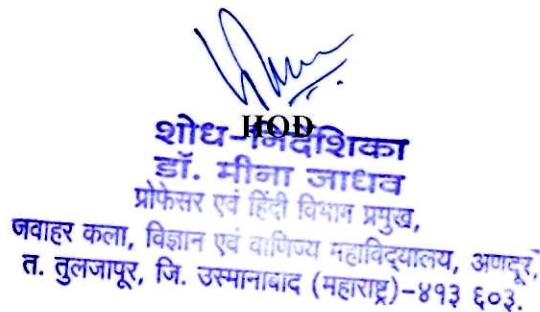 HOD
शोध-निर्देशिका
डॉ. मीना जाधव
प्रोफेसर एवं हिंदी विभाग प्रमुख,
जवाहर कला, विज्ञान एवं वाणिज्य महाविद्यालय, अणदूर,
त. तुलजापूर, जि. उस्मानाबाद (महाराष्ट्र)-४१३ ६०३.